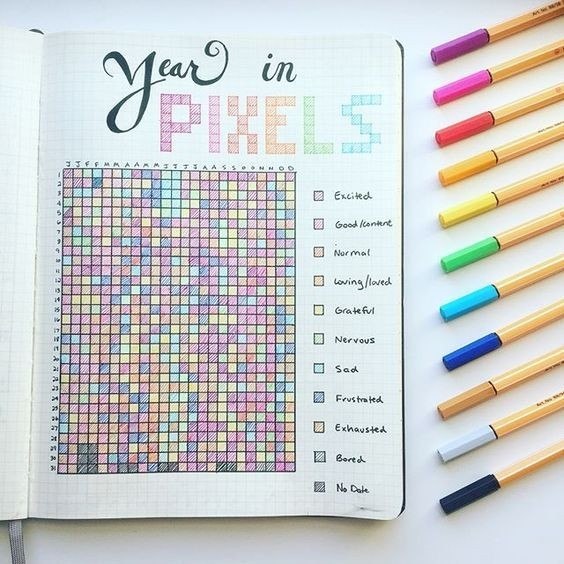 Year in
PIXELS
J J F F M M A A M M J J J J A A S S O O N N D D
1
2
3
4
5
6
7
8
9
10
11
12
13
14
15
16
17
18
19
20
21
22
23
24
25
26
27
28
29
30
31
Excited
Good/content
Normal
Loving/loved
Grateful
Nervous
Sad
Frustrated
Exhausted
Bored
No Date
Art. No.